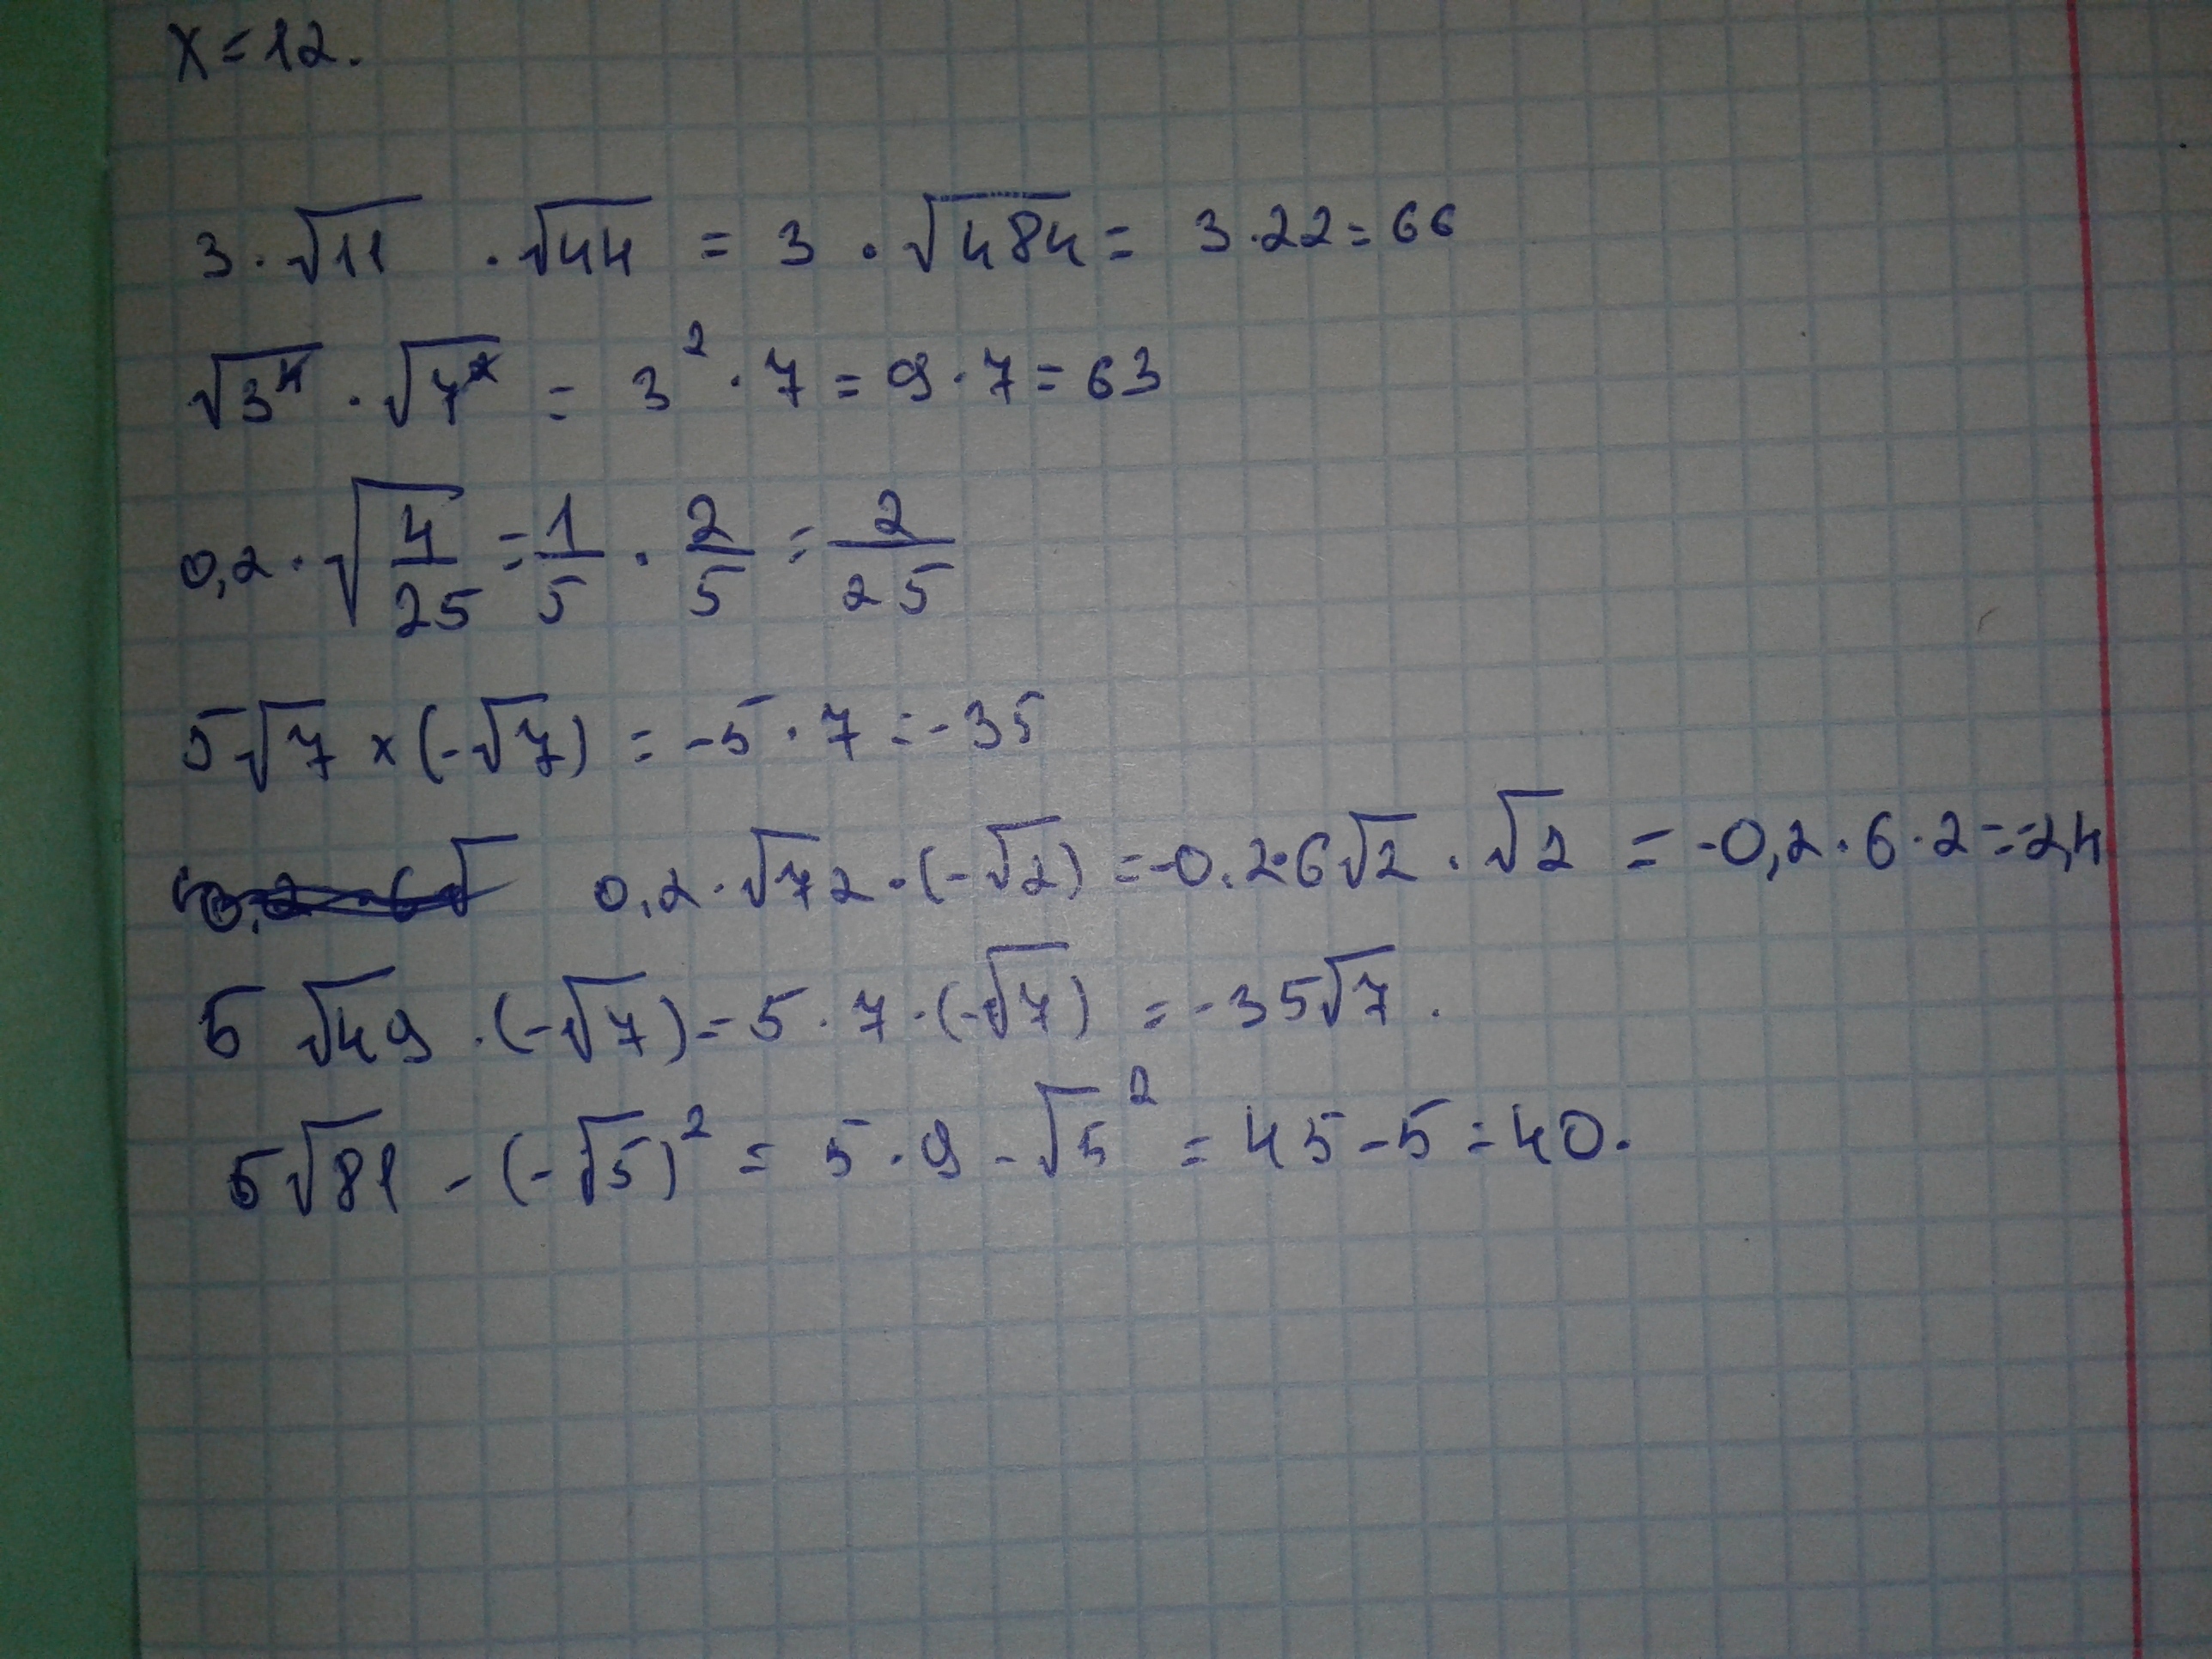 x=12.
3·√11 ·√44 = 3·√484 = 3·22=66
√3⁴·√7² = 3²·7=9·7=63
0,2·√(4/25)=1/5·2/5=2/25
5√7×(-√7)=-5·7=-35
0,2·√72·(-√2)=-0.2·6√2·√2=-0,2·6·2=-2,4
5√49·(-√7)=5·7·(-√7)=-35√7.
5√81-(-√5)²=5·9-√5²=45-5=40.